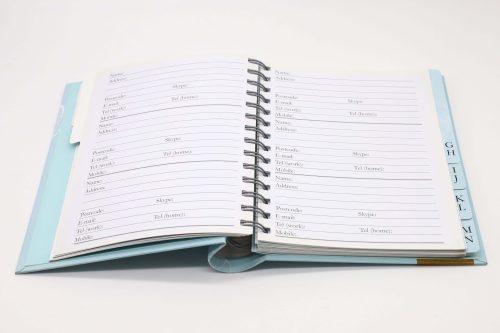 Name:
Address:
Postcode: Skype:
E-mail:
Tel (work): Tel (home):
Mobile:
Name:
Address:
Postcode: Skype:
E-mail:
Tel (work): Tel (home):
Mobile:
Name:
Address:
Postcode: Skype:
E-mail: Tel (home):
Tel (work):
Mobile:
Name:
Address:
Postcode: Skype:
E-mail:
Tel (work): Tel (home):
Mobile:
Name:
Address:
Postcode: Skype:
E-mail:
Tel (work): Tel (home):
Mobile:
Name:
Address:
Postcode: Skype:
E-mail:
Tel (work): Tel (home):
Mobile:
G
H
I
J
K
L
M
N